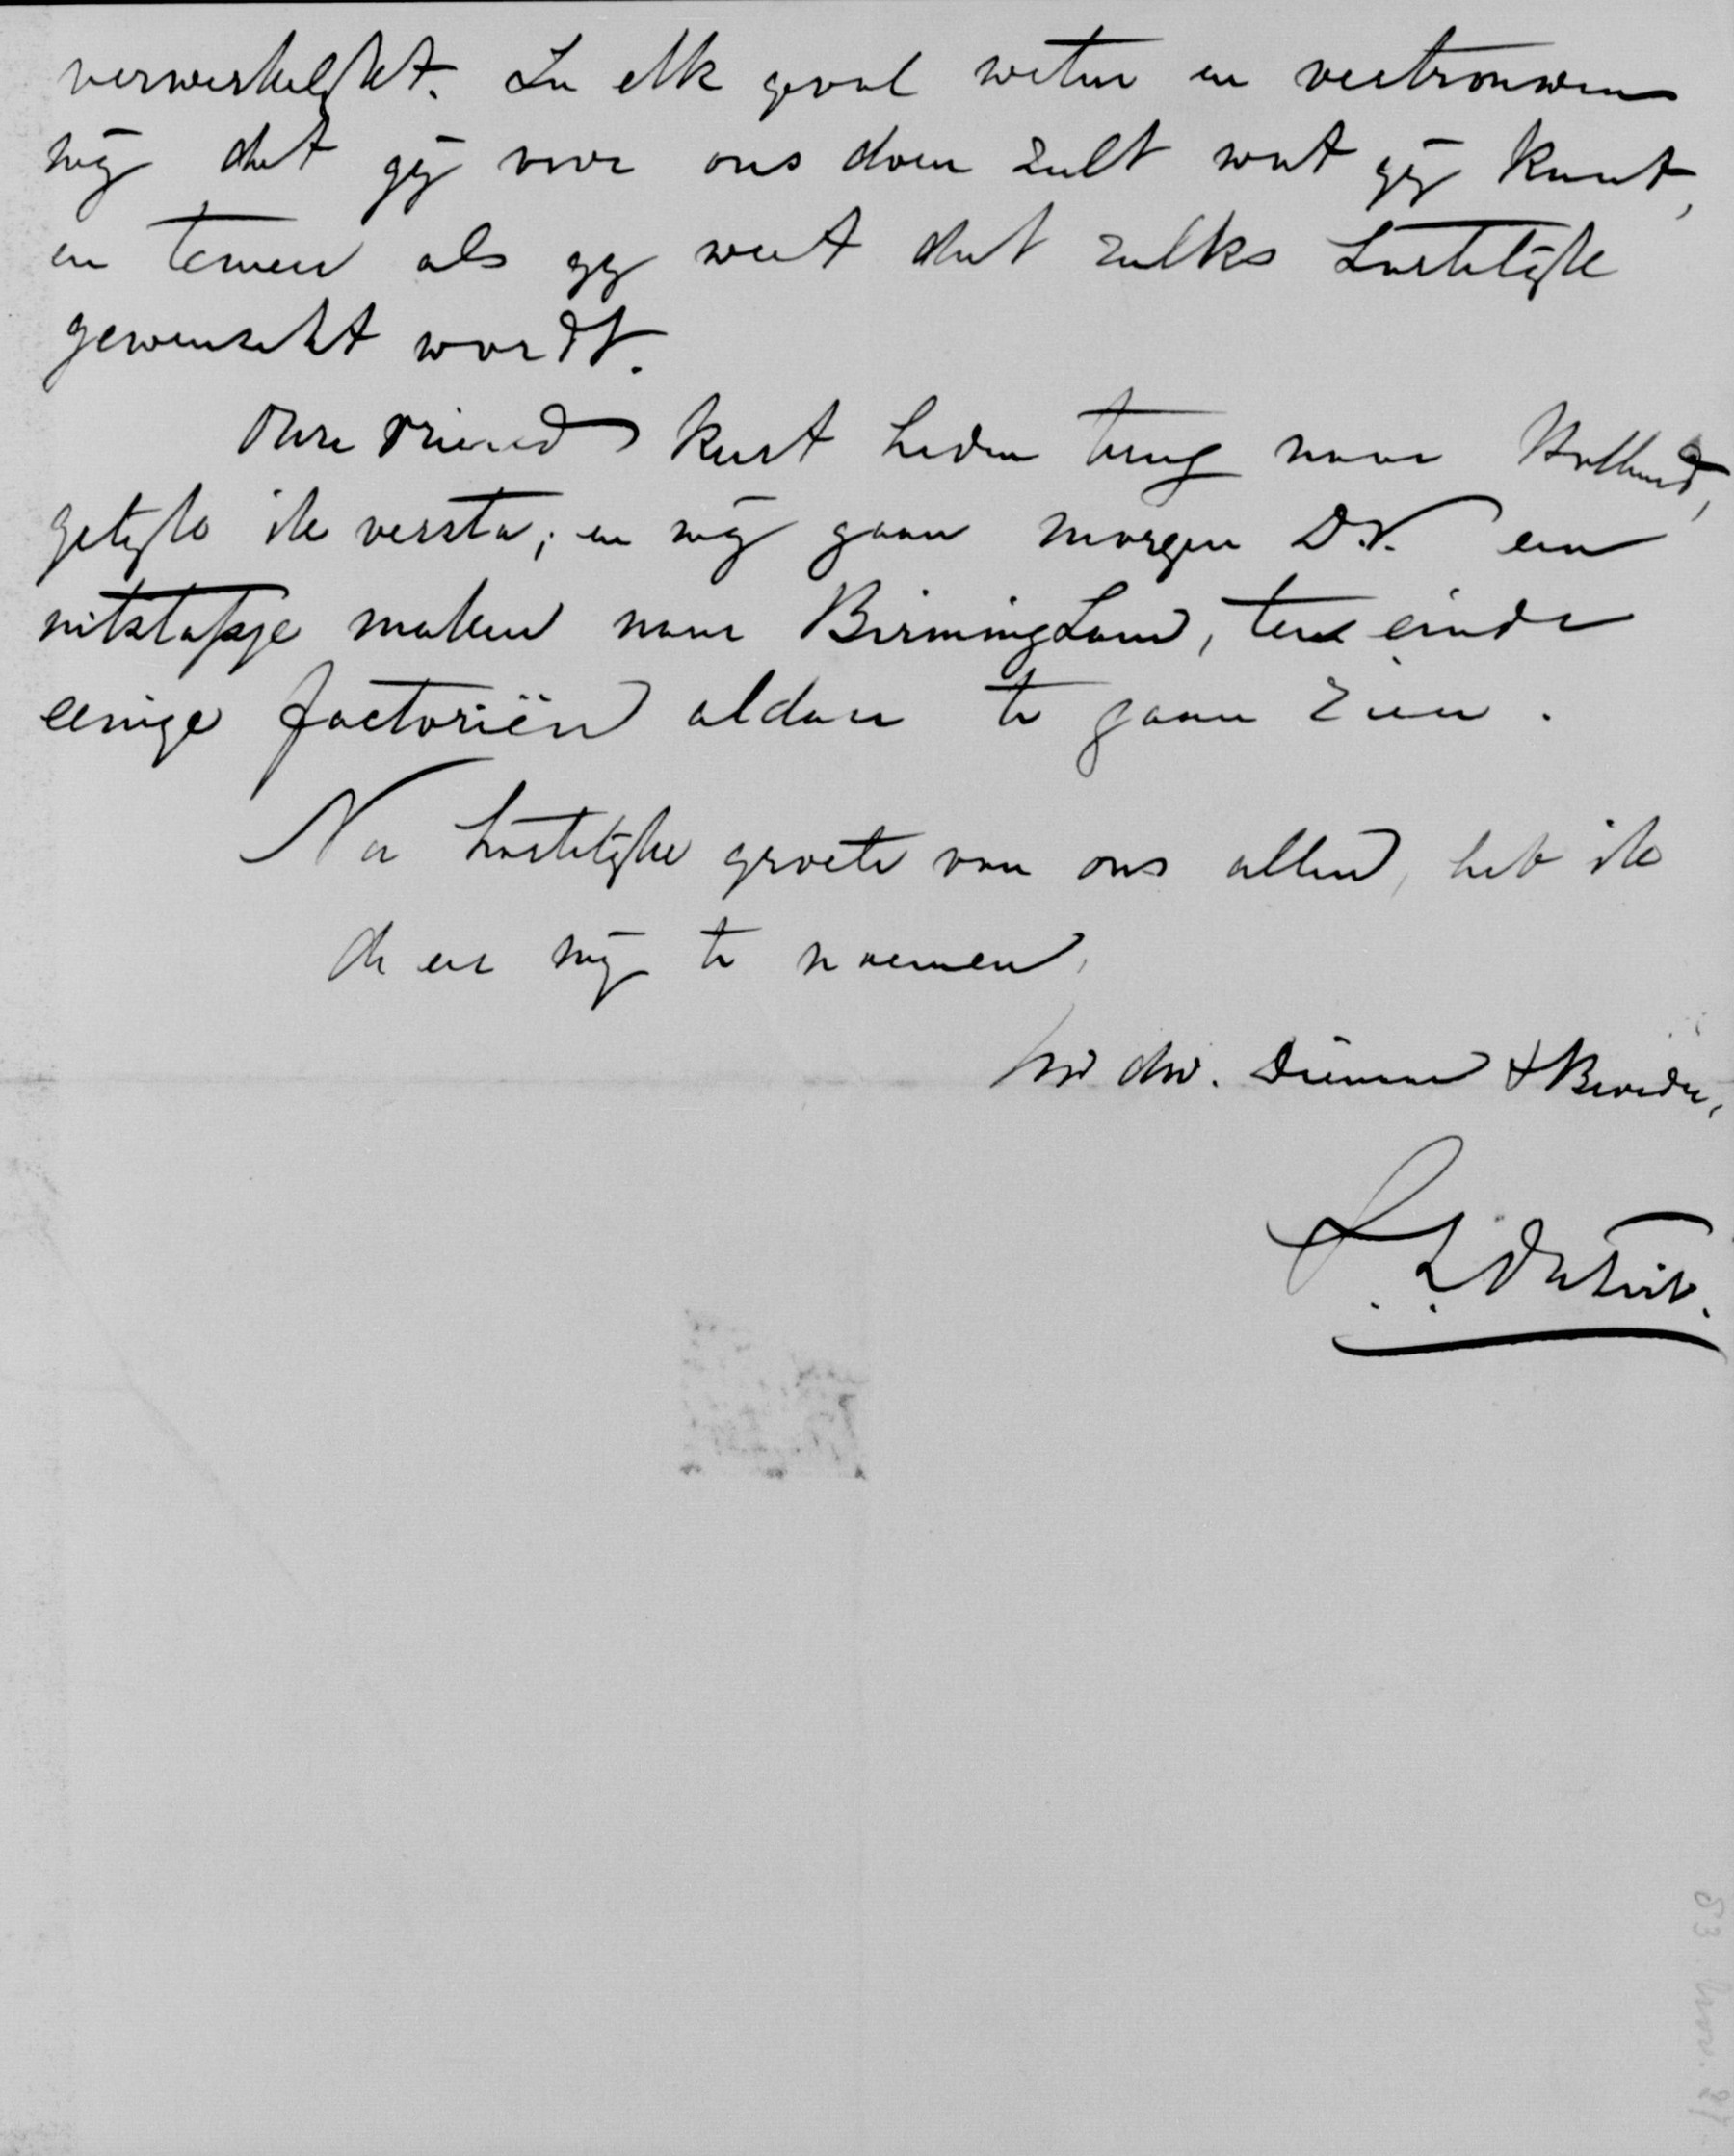 verwerkelijkt. In elk geval weten en vertrouwen
wij dat gij voor ons doen zult wat gij kunt,
en temeer als gij weet dat zulks hartelijk
gewenscht wordt.
Onze vriend keert heden terug naar Holland,
gelijk ik versta; en wij gaan morgen D.V. een
uitstapje maken naar Birmingham, ten einde
eenige factoriën aldaar te gaan zien.
Na hartelijke groete van ons allen, heb ik
de eer mij te noemen,
Uw dw. Dienaar & Broeder,
S. J. du Toit.